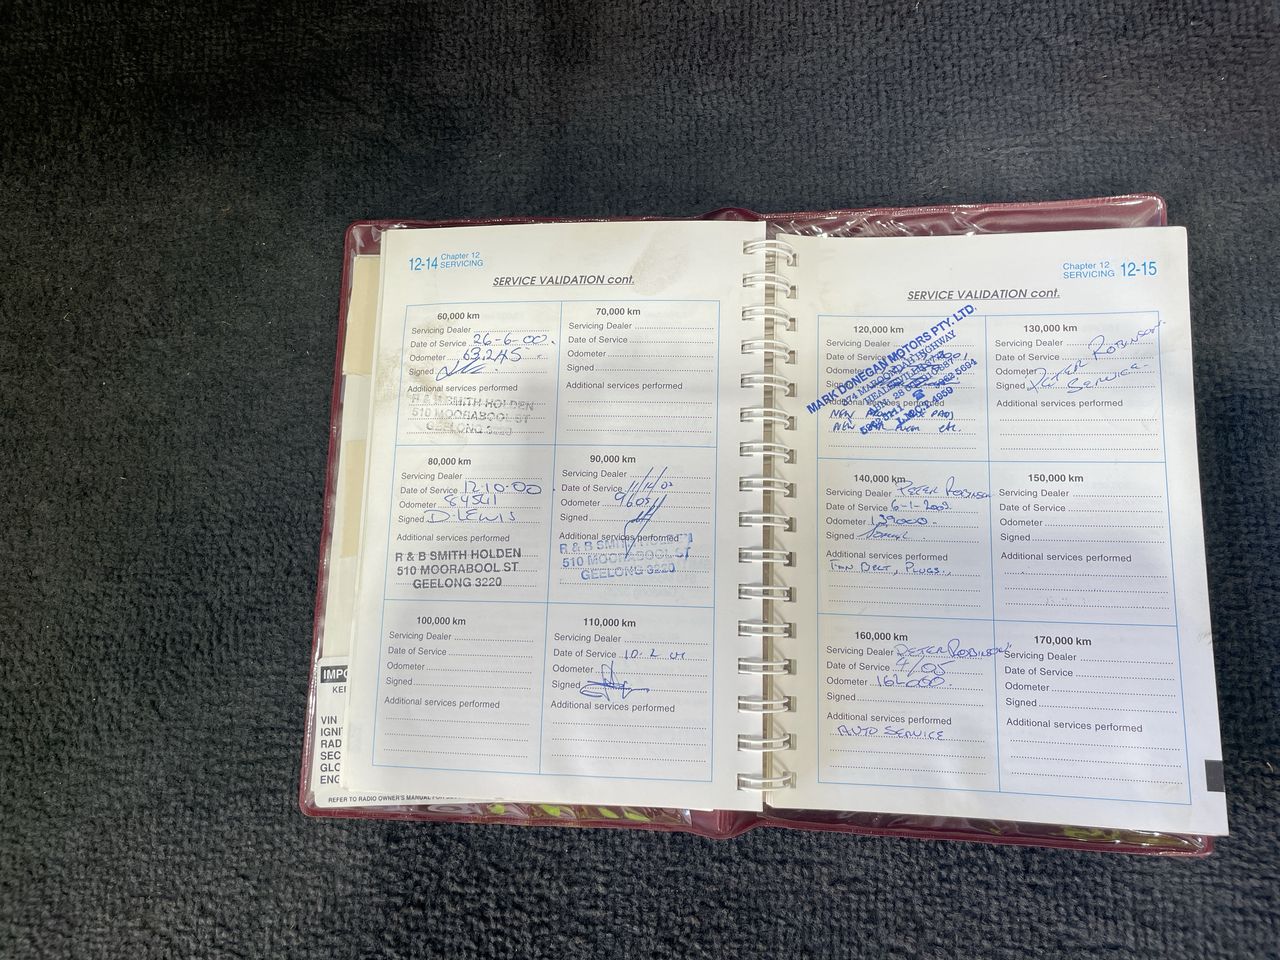 12-14 Chapter 12
SERVICING
SERVICE VALIDATION cont.
60,000 km
Servicing Dealer
Date of Service 26-6-00.
Odometer 63245
Signed
Additional services performed
R & B SMITH HOLDEN
510 MOORABOOL ST
GEELONG 3220
70,000 km
Servicing Dealer
Date of Service
Odometer
Signed
Additional services performed
80,000 km
Servicing Dealer
Date of Service 12.10.00
Odometer 84541
Signed D. LEWIS
Additional services performed
R & B SMITH HOLDEN
510 MOORABOOL ST
GEELONG 3220
90,000 km
Servicing Dealer
Date of Service
Odometer
Signed
Additional services performed
R & B SMITH HOLDEN
510 MOORABOOL ST
GEELONG 3220
100,000 km
Servicing Dealer
Date of Service
Odometer
Signed
Additional services performed
110,000 km
Servicing Dealer
Date of Service 10.2
Odometer
Signed
Additional services performed
IMPO
KEE
VIN
IGNI
RAD
SEC
GLO
ENG
REFER TO RADIO OWNER'S MANUAL FOR
Chapter 12
SERVICING 12-15
SERVICE VALIDATION cont.
120,000 km
Servicing Dealer
Date of Service
Odometer
Signed
Additional services performed
MARK DONEGAN MOTORS PTY. LTD.
274 MAROONDAH HIGHWAY
HEALESVILLE
NEW PADS
NEW etc.
130,000 km
Servicing Dealer
Date of Service PETER ROBINSON
Odometer
Signed PETER SERVICE
Additional services performed
140,000 km
Servicing Dealer PETER ROBINSON
Date of Service 6-1-2003.
Odometer 139000.
Signed
Additional services performed
FAN BELT, PLUGS.,
150,000 km
Servicing Dealer
Date of Service
Odometer
Signed
Additional services performed
160,000 km
Servicing Dealer PETER ROBINSON
Date of Service 4/05
Odometer 162000.
Signed
Additional services performed
AUTO SERVICE
170,000 km
Servicing Dealer
Date of Service
Odometer
Signed
Additional services performed